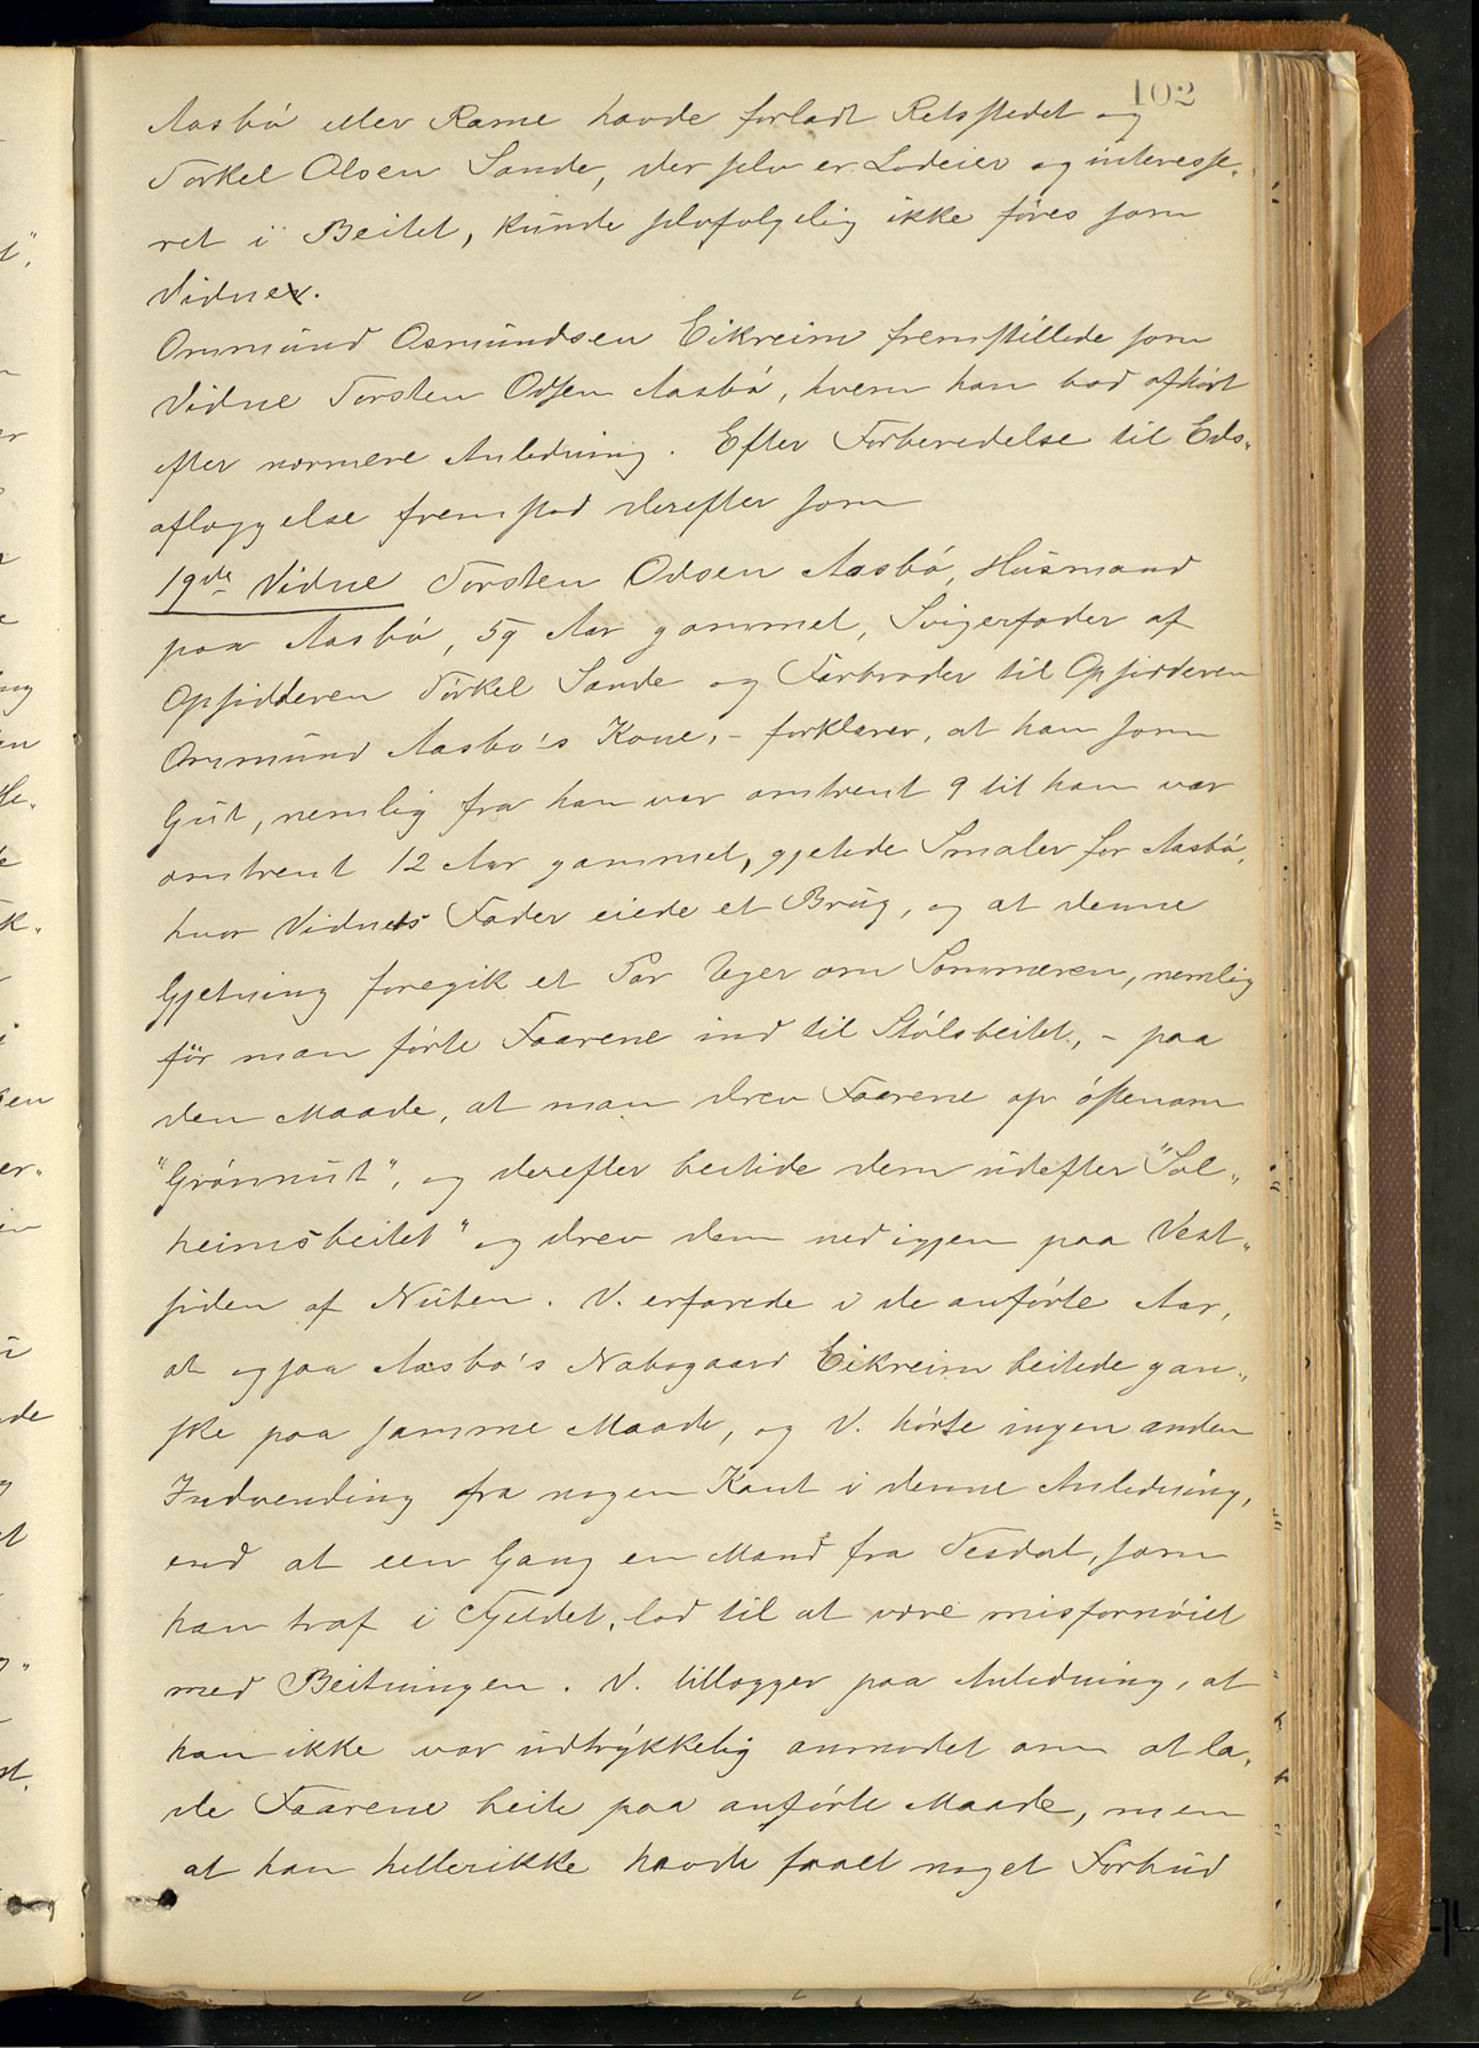 102
Aasbö eller Rame havde forladt Retsstedet og
Torkel Olsen Sande, der selv er Lodeier og interesse„
ret i Beitet, kunde selvfølgelig ikke føres som
Vidne.
Ommund Osmundsen Eikreim fremstillede som
Vidne Torsten Odsen Aasbö, hvem han bad afhört
efter nærmere Anledning. Efter Forberedelse til Eds„
aflæggelse fremstod derefter som
19de Vidne Torsten Odsen Aasbö, Husmand
paa Aasbö, 59 Aar gammel, Svigerfader af
Opsidderen Torkel Sande og Farbroder til Opsidderen
Ommund Aasbö's Kone, - forklarer, at han som
Gut, nemlig fra han var omtrent 9 til han var
omtrent 12 Aar gammel, gjetede Smaler for Aasbö,
hvor Vidnets Fader eiede et Brug, og at denne
Gjetning foregik et Par Uger om Sommeren, nemlig
för man förte Faarene ind til Stölsbeitet, - paa
den Maade, at man drev Faarene op östenom
"Grönnut", og derefter beitede dem udefter "Sol„
heimsbeitet" og drev dem ned igjen paa Vest„
siden af Nuten. V. erfarede i de anförte Aar,
at ogsaa Aasbö's Nabogaard Eikreim beitede gan„
ske paa samme Maade, og V. hörte ingen anden
Indvending fra nogen Kant i denne Anledning,
end at een Gang en Mand fra Tesdal, som
han traf i Fjeldet, lod til at være misfornöiet
med Beitningen. V. tillægger paa Anledning, at
han ikke var udtrykkelig anmodet om at la„
de Faarene beite paa anförte Maade, men
at han hellerikke havde faaet noget Forbud